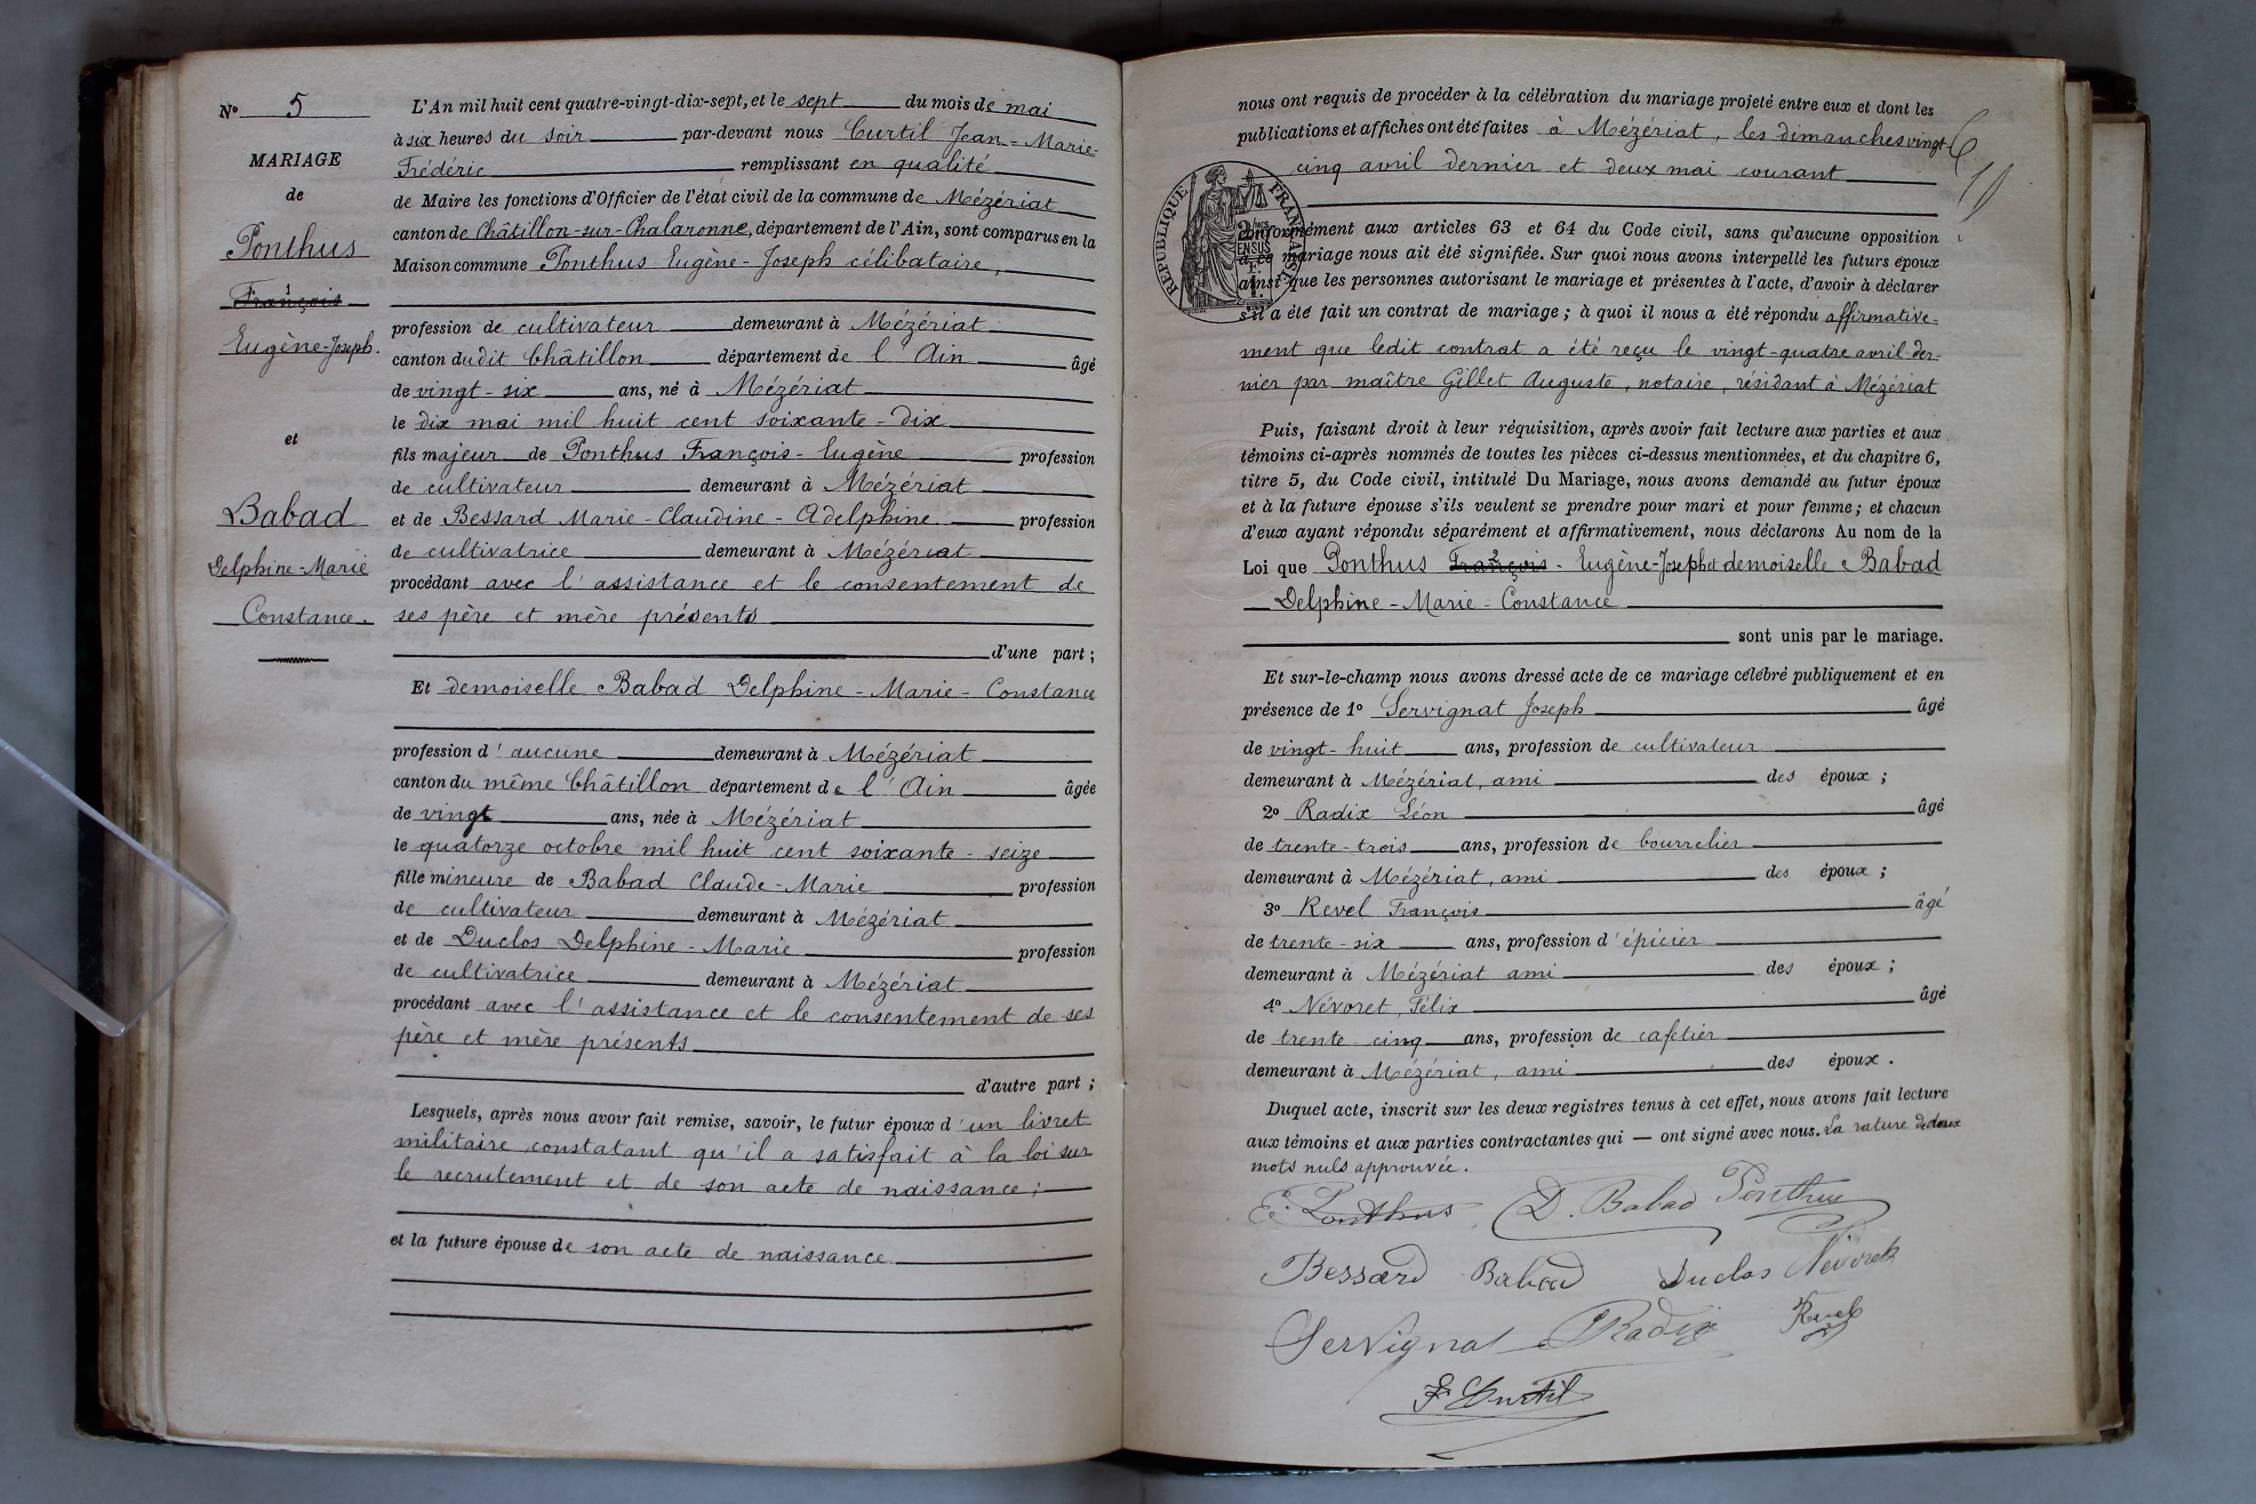 N° 5
MARIAGE
de
Ponthus
François
Eugène-Joseph.
et
Babad
Delphine-Marie
Constance.
L'An mil huit cent quatre-vingt-dix-sept, et le sept du mois de mai
à six heures du soir par-devant nous Curtil Jean-Marie-
Frédéric remplissant en qualité
de Maire les fonctions d'Officier de l'état civil de la commune de Mézériat
canton de Châtillon-sur-Chalaronne, département de l'Ain, sont comparus en la
Maison commune Ponthus Eugène-Joseph célibataire,
profession de cultivateur demeurant à Mézériat
canton dudit Châtillon département de l'Ain âgé
de vingt-six ans, né à Mézériat
le dix mai mil huit cent soixante-dix
fils majeur de Ponthus François-Eugène profession
de cultivateur demeurant à Mézériat
et de Bessard Marie-Claudine-Adelphine profession
de cultivatrice demeurant à Mézériat
procédant avec l'assistance et le consentement de
ses père et mère présents
d'une part ;
Et demoiselle Babad Delphine-Marie-Constance
profession d'aucune demeurant à Mézériat
canton du même Châtillon département de l'Ain âgée
de vingt ans, née à Mézériat
le quatorze octobre mil huit cent soixante-seize
fille mineure de Babad Claude-Marie profession
de cultivateur demeurant à Mézériat
et de Duclos Delphine-Marie profession
de cultivatrice demeurant à Mézériat
procédant avec l'assistance et le consentement de ses
père et mère présents
d'autre part ;
Lesquels, après nous avoir fait remise, savoir, le futur époux d'un livret
militaire constatant qu'il a satisfait à la loi sur
le recrutement et de son acte de naissance ;
et la future épouse de son acte de naissance
nous ont requis de procéder à la célébration du mariage projeté entre eux et dont les
publications et affiches ont été faites à Mézériat, les dimanches vingt-
cinq avril dernier et deux mai courant
RÉPUBLIQUE FRANÇAISE
conformément aux articles 63 et 64 du Code civil, sans qu'aucune opposition
à ce mariage nous ait été signifiée. Sur quoi nous avons interpellé les futurs époux
ainsi que les personnes autorisant le mariage et présentes à l'acte, d'avoir à déclarer
s'il a été fait un contrat de mariage ; à quoi il nous a été répondu affirmative-
ment que ledit contrat a été reçu le vingt-quatre avril der-
nier par maître Gillet Auguste, notaire, résidant à Mézériat
Puis, faisant droit à leur réquisition, après avoir fait lecture aux parties et aux
témoins ci-après nommés de toutes les pièces ci-dessus mentionnées, et du chapitre 6,
titre 5, du Code civil, intitulé Du Mariage, nous avons demandé au futur époux
et à la future épouse s'ils veulent se prendre pour mari et pour femme ; et chacun
d'eux ayant répondu séparément et affirmativement, nous déclarons Au nom de la
Loi que Ponthus François-Eugène-Joseph et demoiselle Babad
Delphine-Marie-Constance
sont unis par le mariage.
Et sur-le-champ nous avons dressé acte de ce mariage célébré publiquement et en
présence de 1° Servignat Joseph âgé
de vingt-huit ans, profession de cultivateur
demeurant à Mézériat, ami des époux ;
2° Radix Léon âgé
de trente-trois ans, profession de bourrelier
demeurant à Mézériat, ami des époux ;
3° Revel François âgé
de trente-six ans, profession d'épicier
demeurant à Mézériat ami des époux ;
4° Névoret, Félix âgé
de trente cinq ans, profession de cafetier
demeurant à Mézériat, ami des époux.
Duquel acte, inscrit sur les deux registres tenus à cet effet, nous avons fait lecture
aux témoins et aux parties contractantes qui — ont signé avec nous. La rature de deux
mots nuls approuvée.
E. Ponthus D. Babad Ponthus
Bessard Babad Duclos Névoret
Servignat Radix Revel
F. Curtil